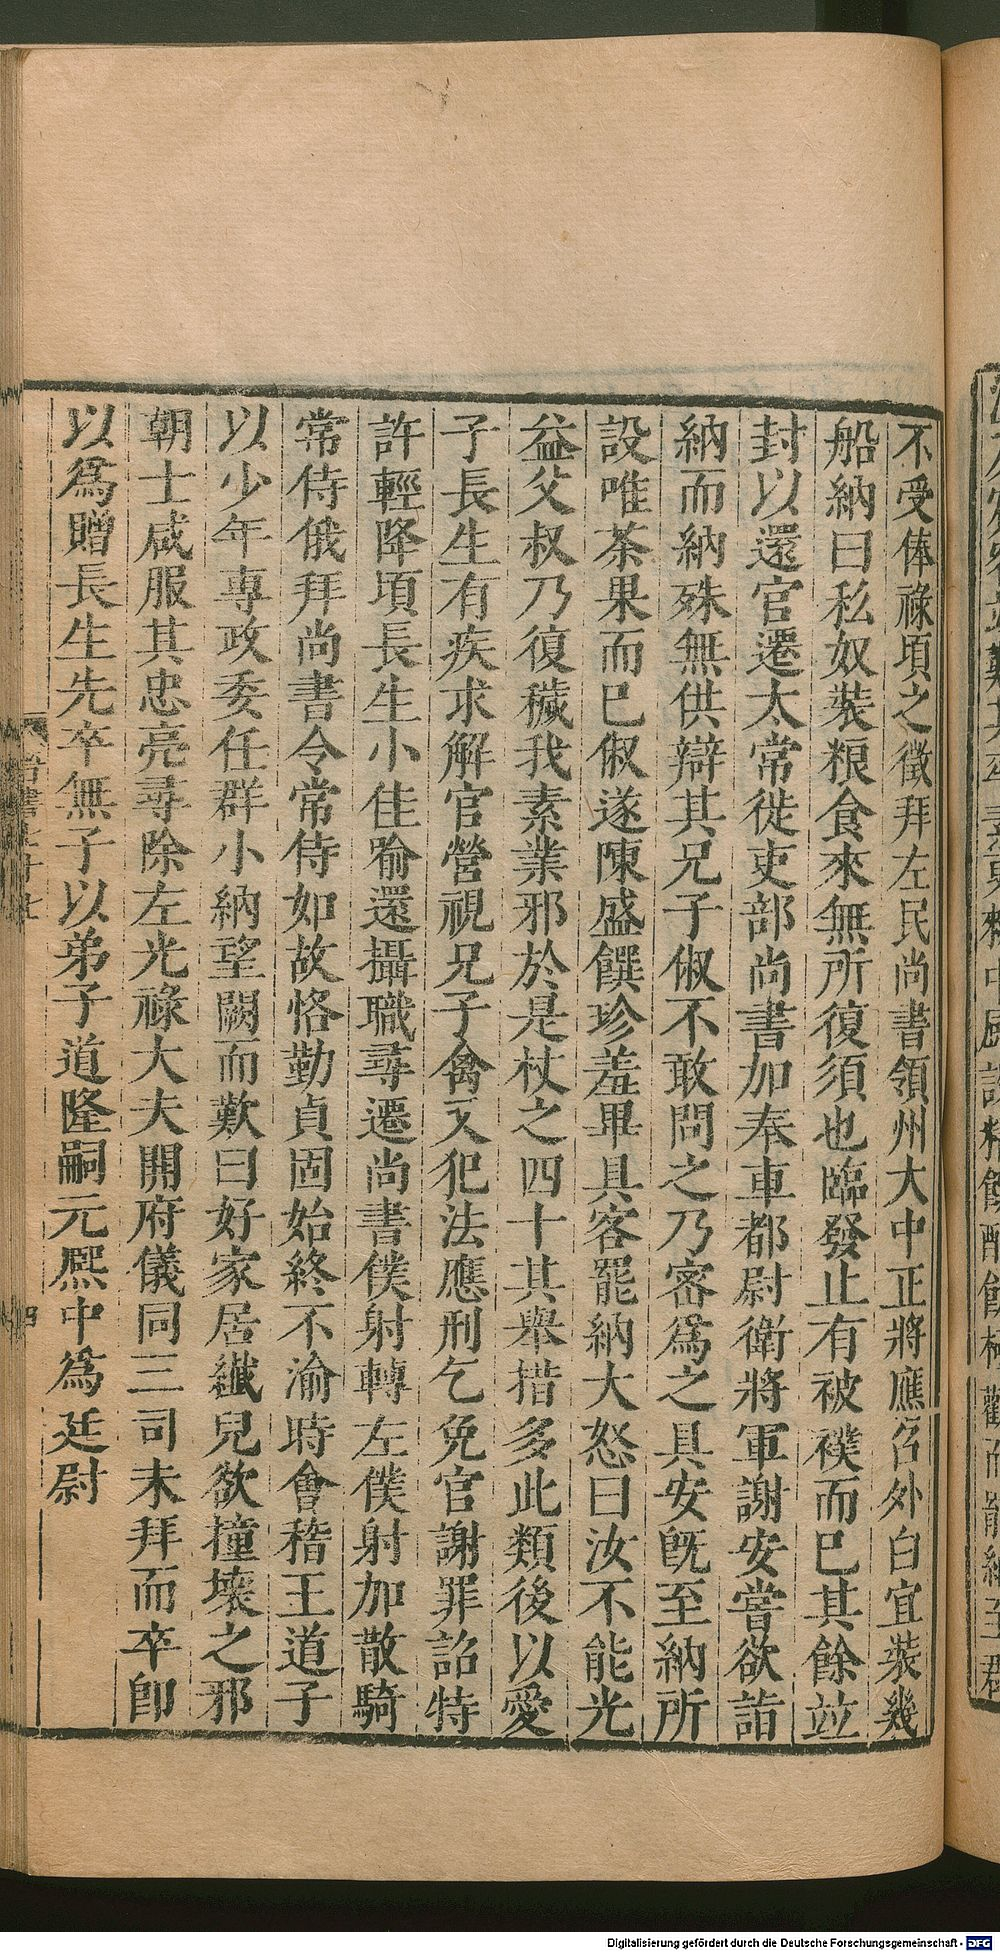 不受俸祿頃之徵拜左民尚書領州大中正將應召外白宜裝幾
船納曰私奴裝粮食來無所復須也臨發止有被襆而已其餘竝
封以還官遷太常徙吏部尚書加奉車都尉衛將軍謝安嘗欲詣
納而納殊無供辯其兄子俶不敢問之乃密爲之具安旣至納所
設唯茶果而已俶遂陳盛饌珍羞畢具客罷納大怒曰汝不能光
益父叔乃復穢我素業邪於是杖之四十其舉措多此類後以愛
子長生有疾求解官營視兄子禽又犯法應刑乞免官謝罪詔特
許輕降頃長生小佳喻還攝職尋遷尚書僕射轉左僕射加散騎
常侍俄拜尚書令常侍如故恪勤貞固始終不渝時會稽王道子
以少年專政委任群小納望闕而歎曰好家居纖兒欲撞壞之邪
朝士咸服其忠亮尋除左光祿大夫開府儀同三司未拜而卒卽
以爲贈長生先卒無子以弟子道隆嗣元熙中爲廷尉
四
Digitalisierung gefördert durch die Deutsche Forschungsgemeinschaft - DFG